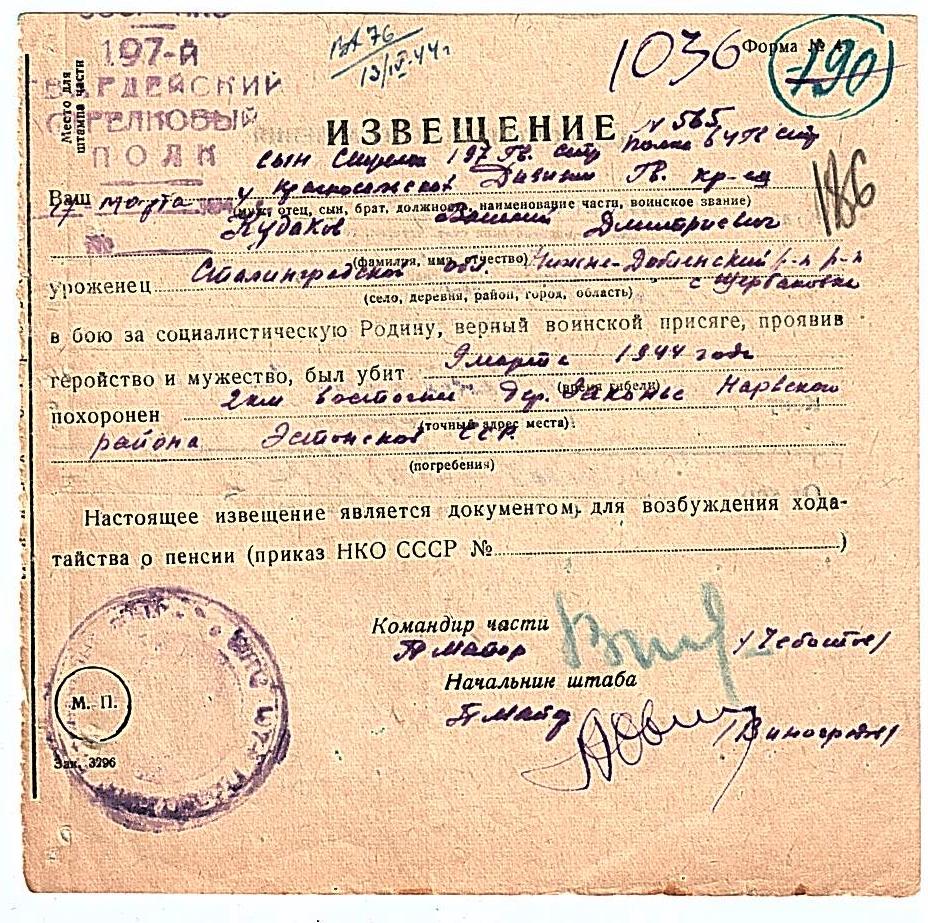 197-й
ГВАРДЕЙСКИЙ
СТРЕЛКОВЫЙ
ПОЛК
Место для
штампа части
ВА 76
13/IV-44г
1036
Форма № 4
190
186
ИЗВЕЩЕНИЕ № 565
сын Стрелок 197 Гв. стр полка 64 Гв стр
Ваш у Красносельской Дивизии Гв. кр-ец
марта
(муж, отец, сын, брат, должность, наименование части, воинское звание)
Кудаков Дмитриевич
(фамилия, имя, отчество)
уроженец Сталинградской обл. Нижне-Добленский р-н
с Щербаковка
(село, деревня, район, город, область)
в бою за социалистическую Родину, верный воинской присяге, проявив
геройство и мужество, был убит 9 марта 1944 года
(время гибели)
похоронен 2км восточней дер. Нарвского
(точный адрес места)
района Эстонской ССР.
(погребения)
Настоящее извещение является документом, для возбуждения хода-
тайства о пенсии (приказ НКО СССР №)
Командир части
Гв майор
Начальник штаба
Гв майор
М. П.
Зак. 3296